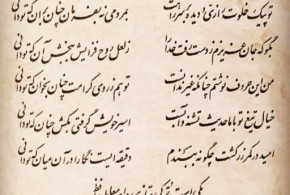 تو پیک خلوت رازی و دیده بر سر راهت بمردمی نه بفرمان چنان بران که تو دانی
بگو که جان عزیزم ز دست رفت خدا را ز لعل روح فزایش ببخش آن که تو دانی
من این حروف نوشتم چنانکه غیر ندانست تو هم ز روی کرامت چنان بخوان که تو دانی
خیال تیغ تو با ما حدیث تشنه و آبست اسیر خویش گرفتی بکش چنان که تو دانی
امید در کمر زرکشت چگونه ببندم دقیقه ایست نگارا در آن میان که تو دانی
یکی است ترکی و تازی در این معامله حافظ